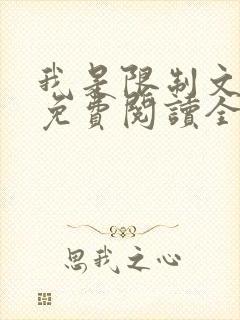 我是限制文
免費閱讀全
思我之心